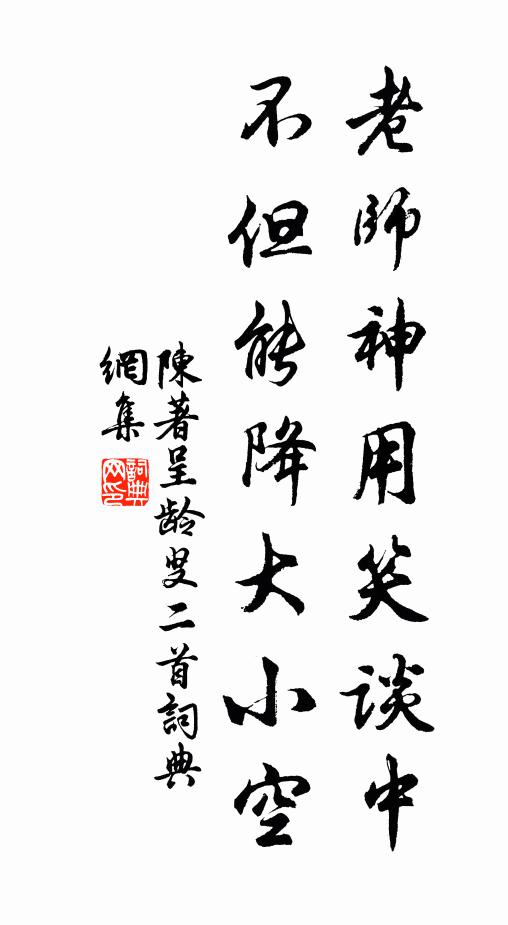 老師神用笑談中
不但能降大小空
陳著呈龄叟二首詞典
網集
詞典
网印